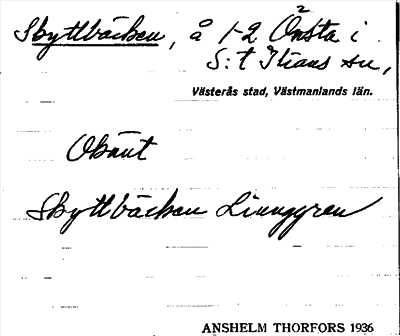 Skyttbäcken, å 1-2 Önsta i
2
S:t Ilians sn,
Västerås stad, Västmanlands län.
Okänt
Skyttbäcken Linnggren
ANSHELM THORFORS 1936